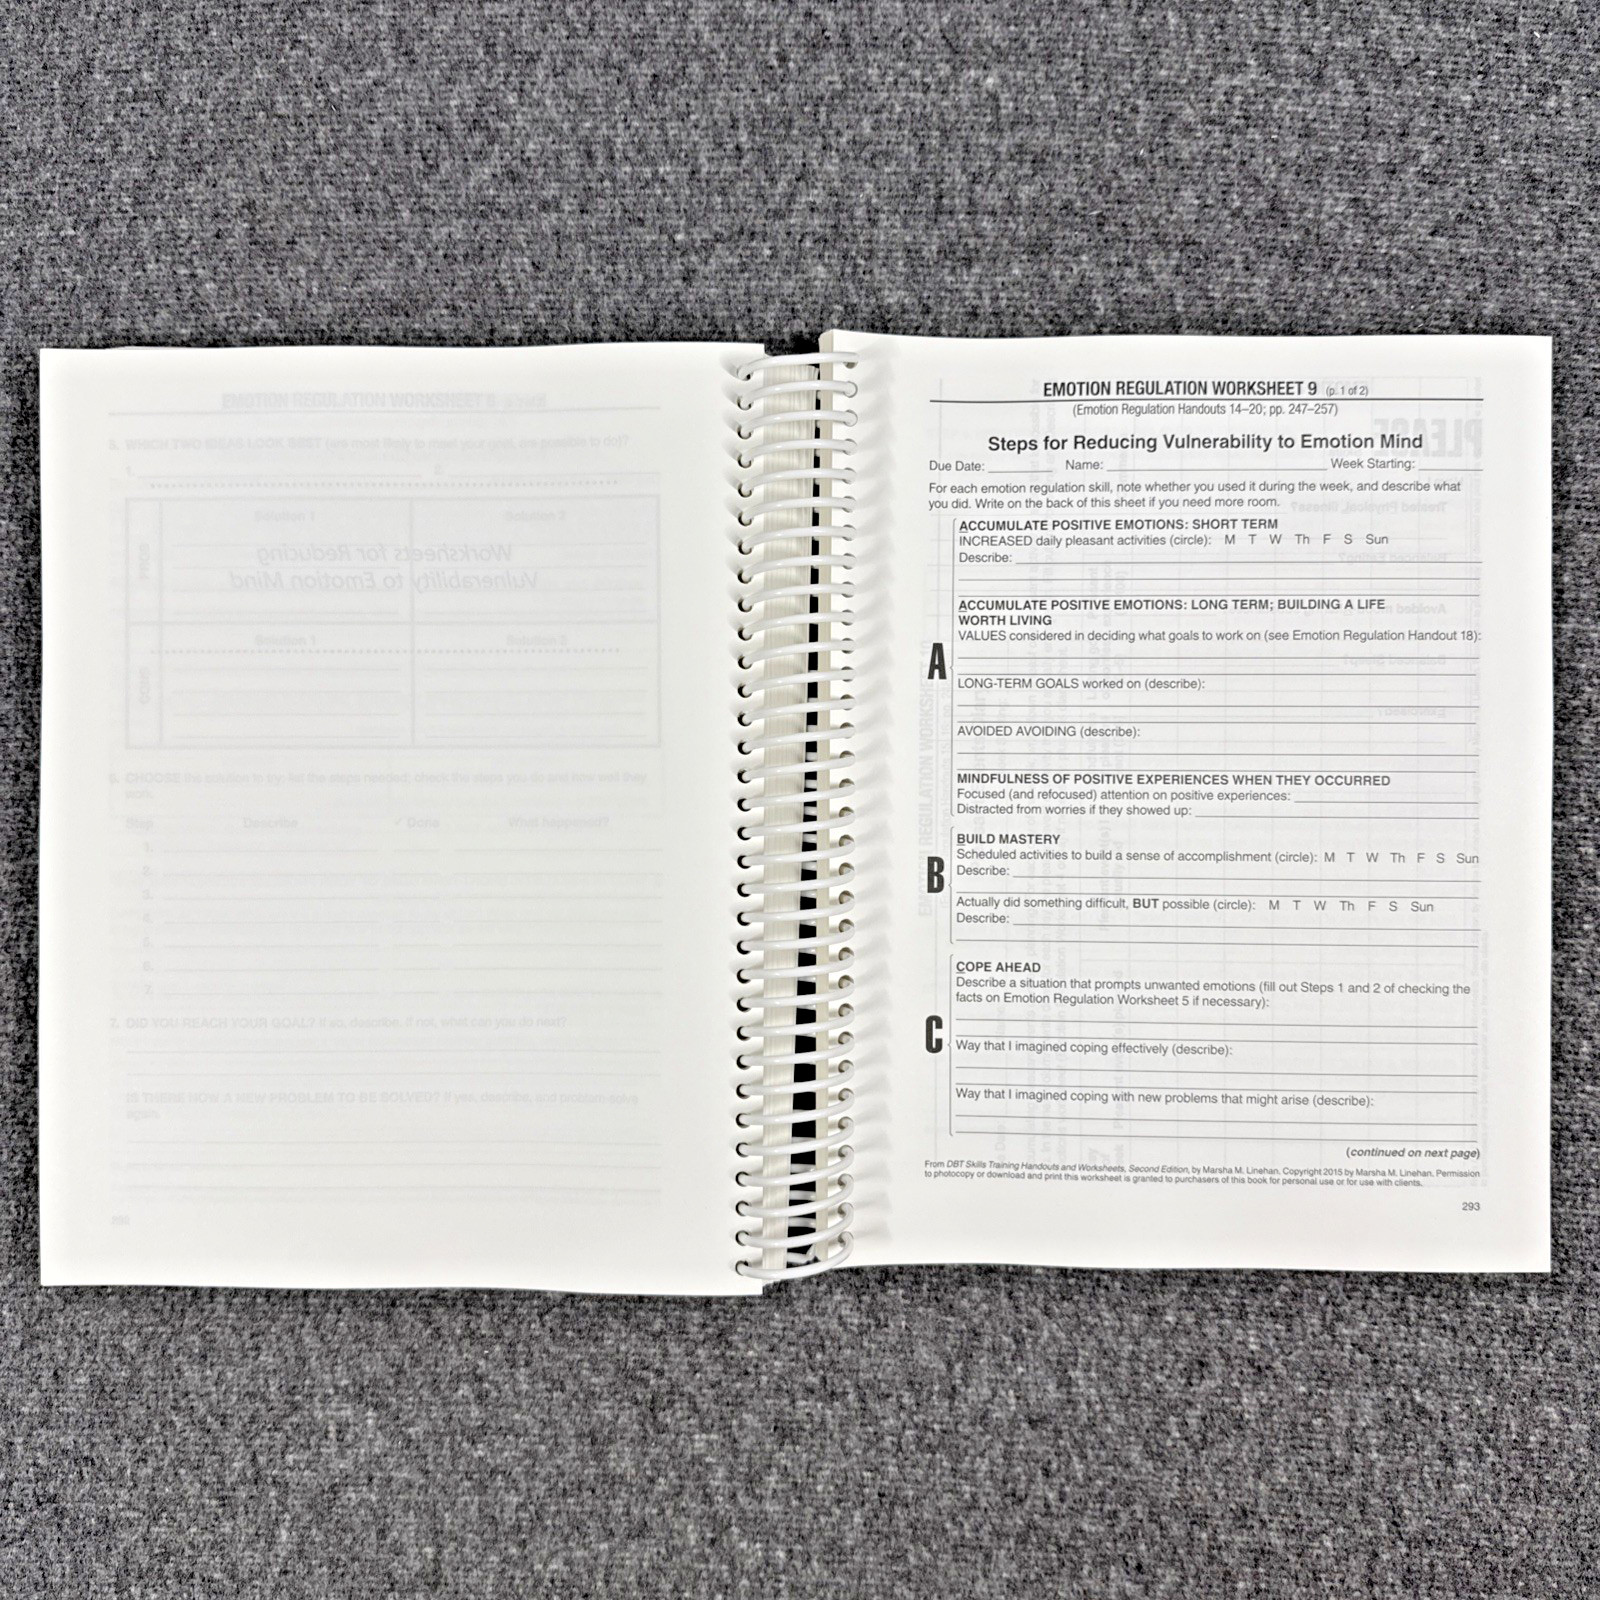 EMOTION REGULATION WORKSHEET 9 (p. 1 of 2)
(Emotion Regulation Handouts 14–20; pp. 247–257)
Steps for Reducing Vulnerability to Emotion Mind
Due Date: Name: Week Starting:
For each emotion regulation skill, note whether you used it during the week, and describe what
you did. Write on the back of this sheet if you need more room.
ACCUMULATE POSITIVE EMOTIONS: SHORT TERM
INCREASED daily pleasant activities (circle): M T W Th F S Sun
Describe:
ACCUMULATE POSITIVE EMOTIONS: LONG TERM; BUILDING A LIFE
WORTH LIVING
VALUES considered in deciding what goals to work on (see Emotion Regulation Handout 18):
A
LONG-TERM GOALS worked on (describe):
AVOIDED AVOIDING (describe):
MINDFULNESS OF POSITIVE EXPERIENCES WHEN THEY OCCURRED
Focused (and refocused) attention on positive experiences:
Distracted from worries if they showed up:
BUILD MASTERY
Scheduled activities to build a sense of accomplishment (circle): M T W Th F S Sun
B
Describe:
Actually did something difficult, BUT possible (circle): M T W Th F S Sun
Describe:
COPE AHEAD
Describe a situation that prompts unwanted emotions (fill out Steps 1 and 2 of checking the
facts on Emotion Regulation Worksheet 5 if necessary):
C
Way that I imagined coping effectively (describe):
Way that I imagined coping with new problems that might arise (describe):
(continued on next page)
From DBT Skills Training Handouts and Worksheets, Second Edition, by Marsha M. Linehan. Copyright 2015 by Marsha M. Linehan. Permission
to photocopy or download and print this worksheet is granted to purchasers of this book for personal use or for use with clients.
293
Worksheets for Reducing
Vulnerability to Emotion Mind